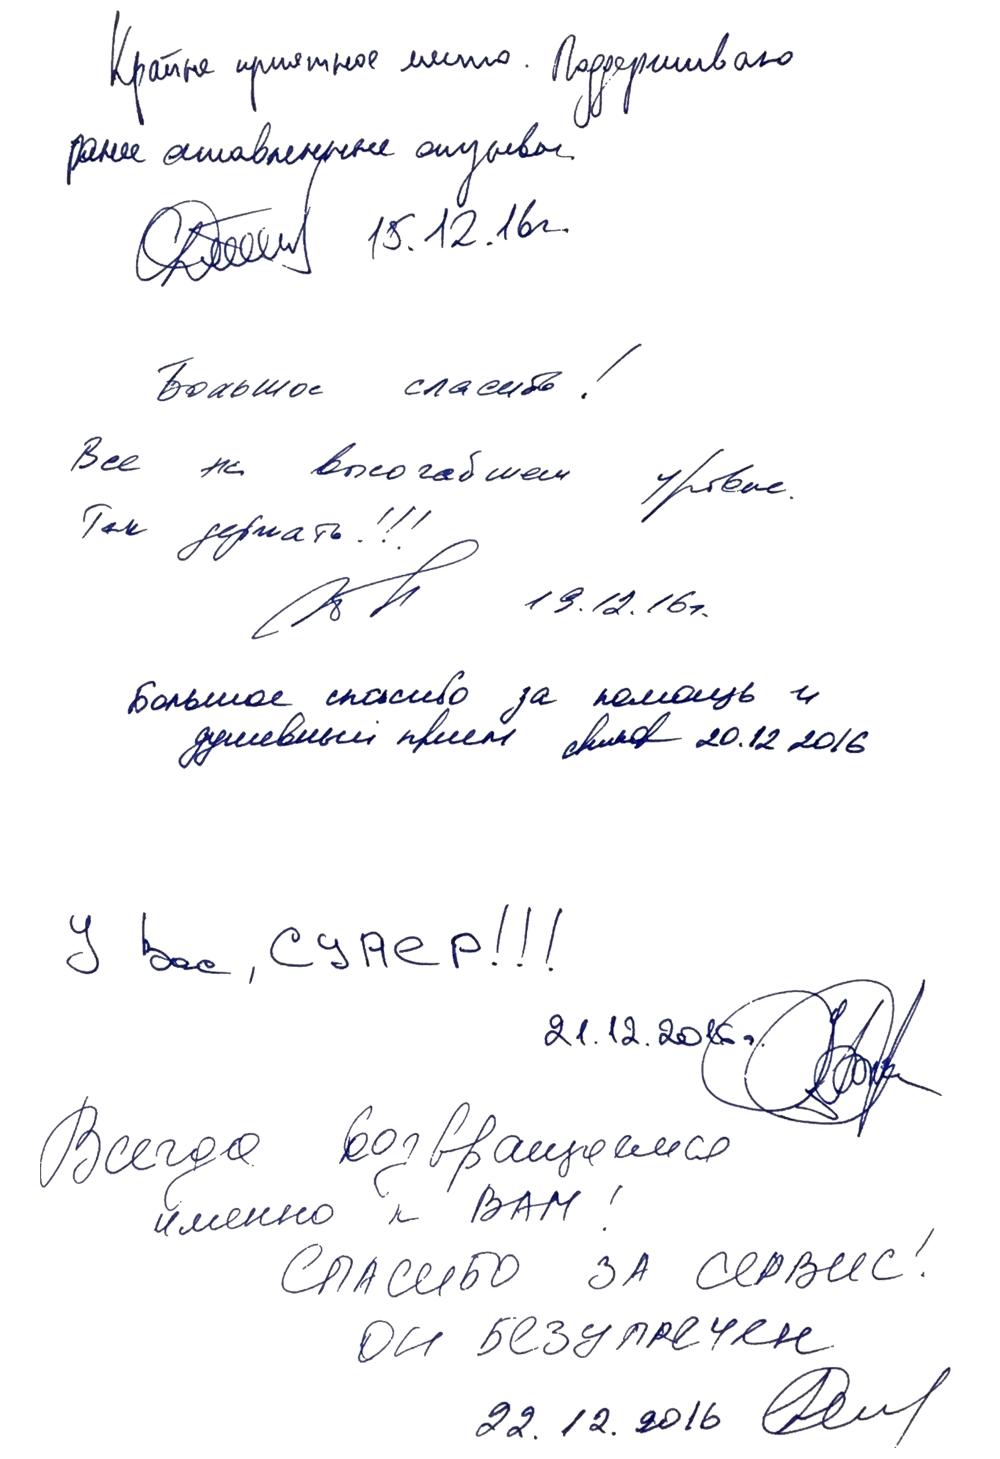 Крайне приятное место. Поддерживаю
ранее оставленные отзывы.
15.12.16г.
Большое спасибо!
Все на высочайшем уровне.
Так держать!!!
19.12.16г.
Большое спасибо за помощь и
душевный прием 20.12 2016
У Вас, СУПЕР!!!
21.12.2016г.
Всегда возвращаемся
именно к ВАМ!
СПАСИБО ЗА СЕРВИС!
ОН БЕЗУПРЕЧЕН
22.12.2016